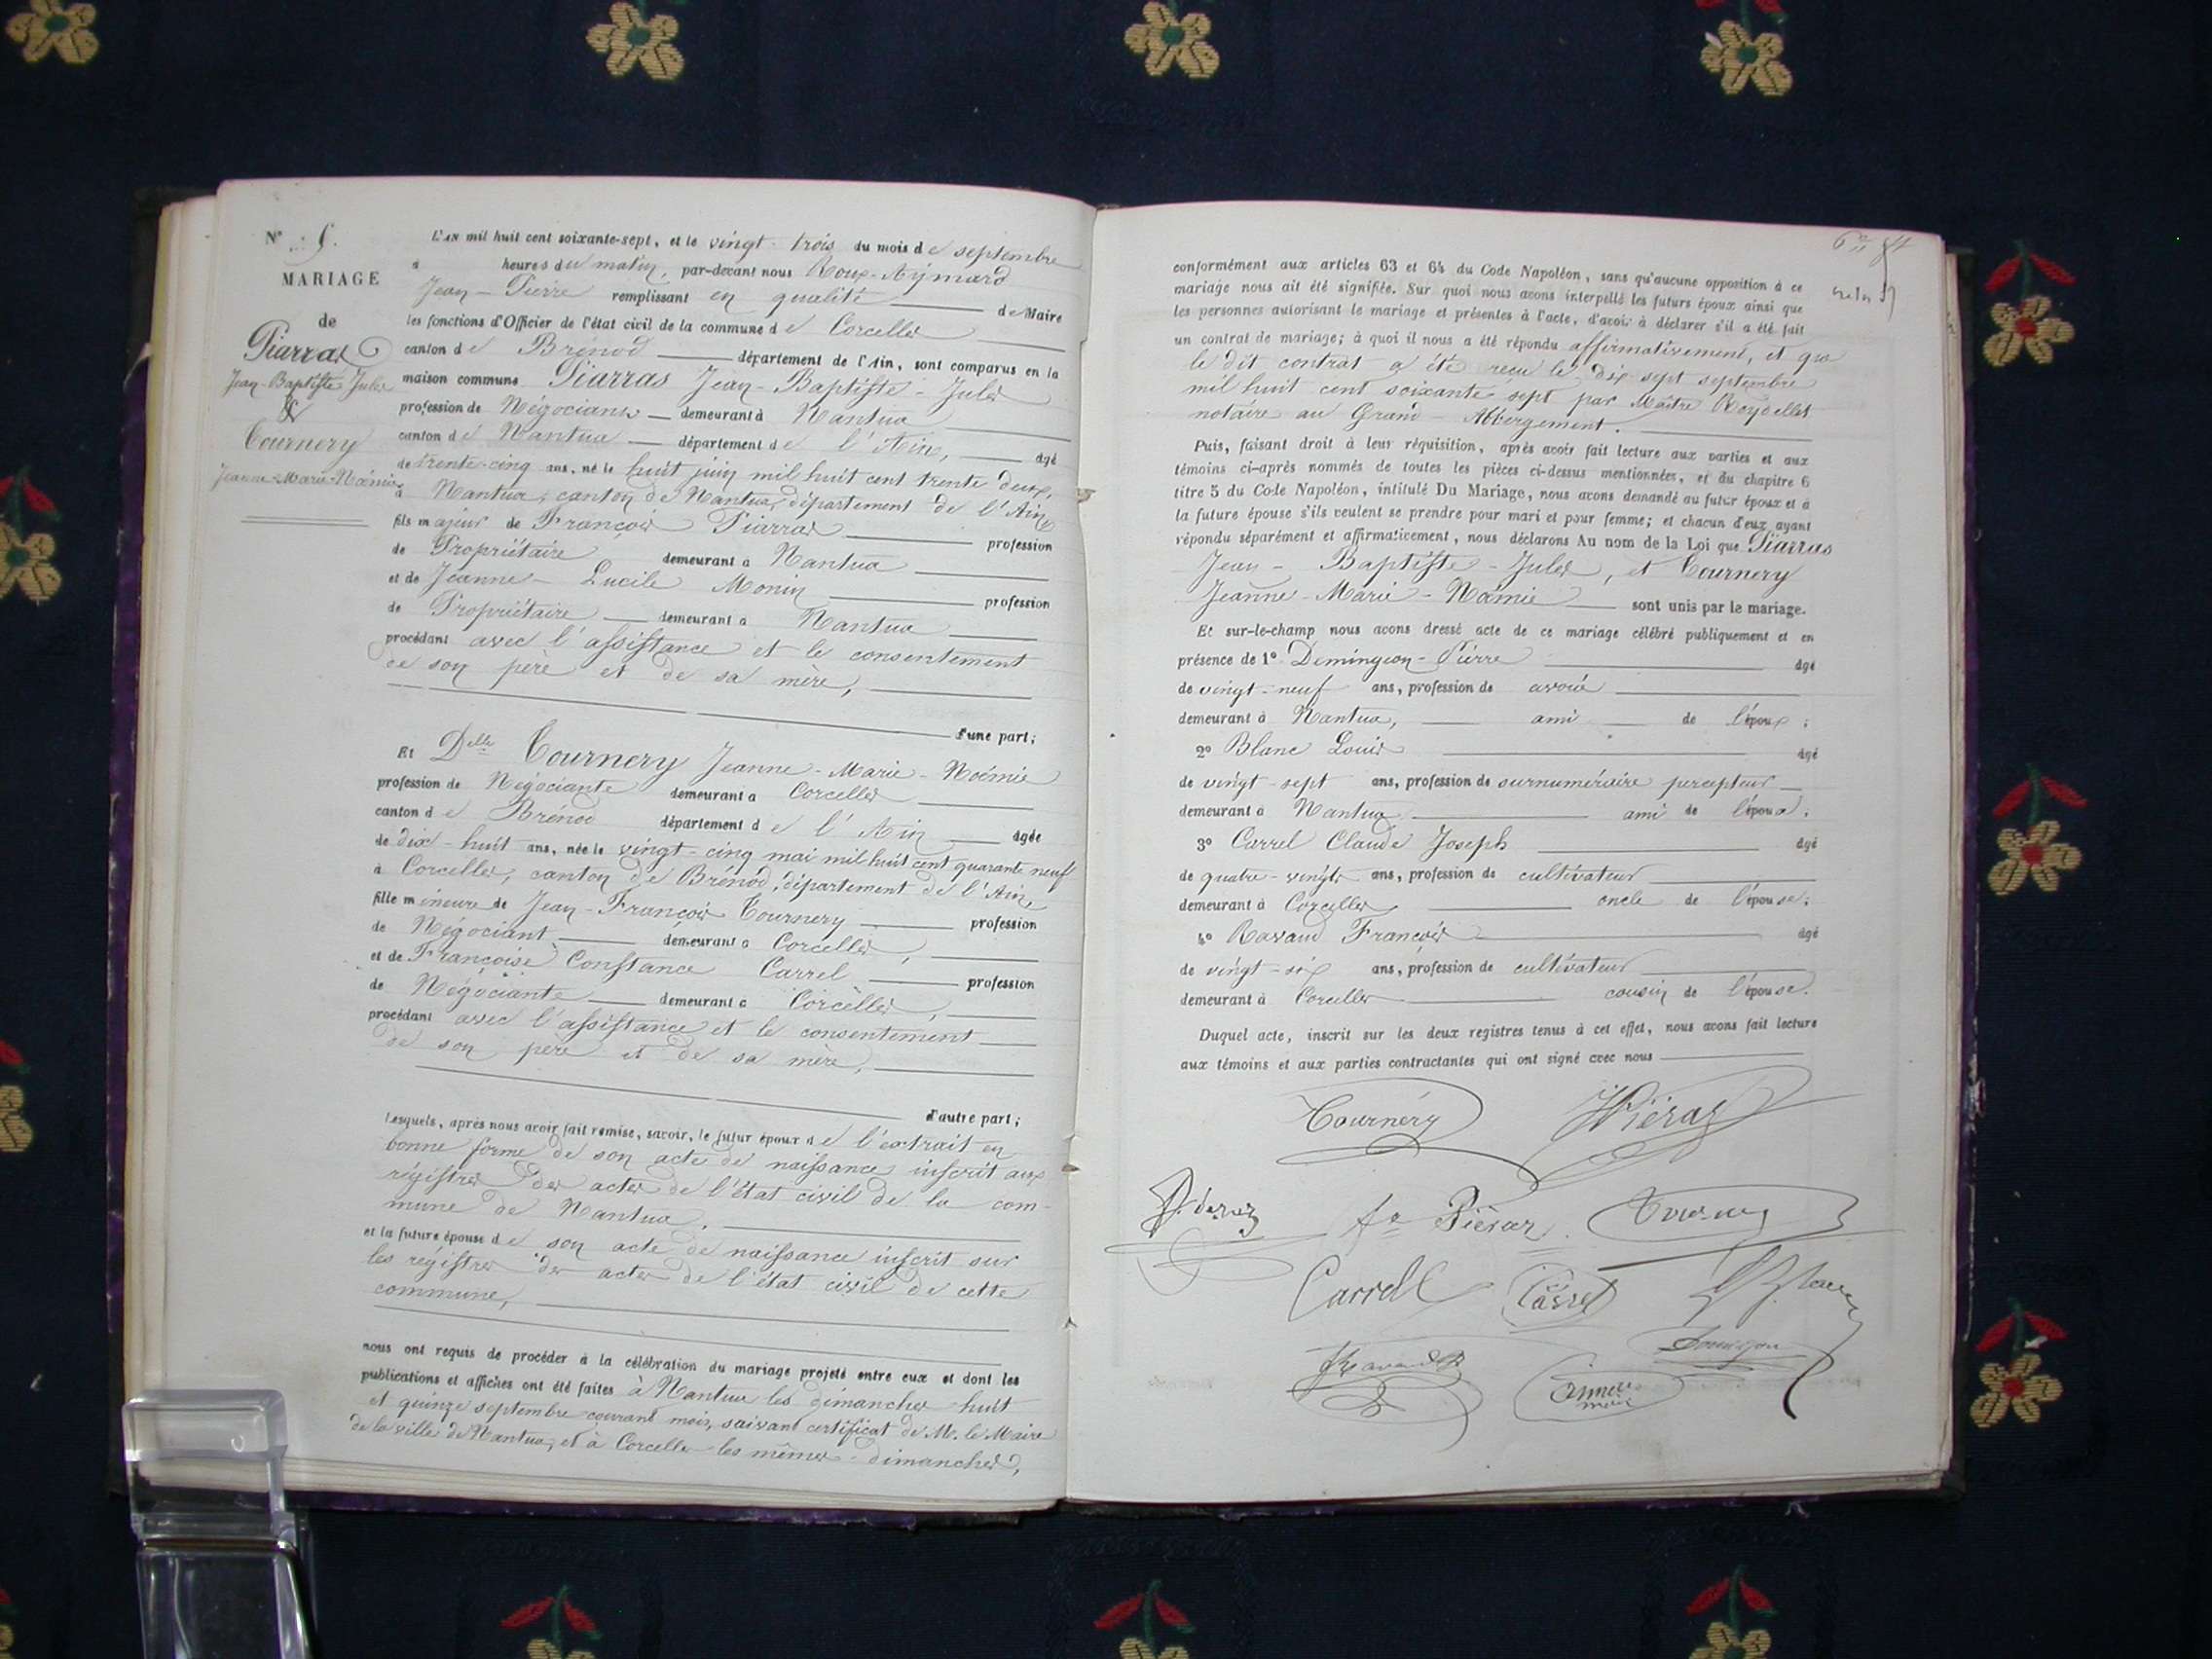 N° 5.
MARIAGE
de
Piarras
Jean-Baptiste Jules
&
Tournery
Jeanne-Marie-Noémie
L'AN mil huit cent soixante-sept, et le vingt-trois du mois de septembre
à heures du matin, par-devant nous Roux-Aymard
Jean-Pierre remplissant en qualité de Maire
les fonctions d'Officier de l'état civil de la commune de Corcelles
canton de Brénod département de l'Ain, sont comparus en la
maison commune Piarras Jean-Baptiste-Jules
profession de Négociant demeurant à Nantua
canton de Nantua département de l'Ain, âgé
de trente-cinq ans, né le huit juin mil huit cent trente deux,
à Nantua, canton de Nantua, département de l'Ain,
fils majeur de François Piarras profession
de Propriétaire demeurant à Nantua
et de Jeanne-Lucile Monin profession
de Propriétaire demeurant à Nantua
procédant avec l'assistance et le consentement
de son père et de sa mère,
d'une part;
Et Delle Tournery Jeanne-Marie-Noémie
profession de Négociante demeurant à Corcelles
canton de Brénod département de l'Ain âgée
de dix-huit ans, née le vingt-cinq mai mil huit cent quarante neuf
à Corcelles, canton de Brénod, département de l'Ain,
fille mineure de Jean-François Tournery profession
de Négociant demeurant à Corcelles,
et de Françoise Constance Carrel profession
de Négociante demeurant à Corcelles,
procédant avec l'assistance et le consentement
de son père et de sa mère,
d'autre part;
Lesquels, après nous avoir fait remise, savoir, le futur époux de l'extrait en
bonne forme de son acte de naissance inscrit aux
régistres des actes de l'état civil de la com-
mune de Nantua.
et la future épouse de son acte de naissance inscrit sur
les régistres des actes de l'état civil de cette
commune,
nous ont requis de procéder à la célébration du mariage projeté entre eux et dont les
publications et affiches ont été faites à Nantua les dimanches huit
et quinze septembre courant mois, suivant certificat de M. le Maire
de la ville de Nantua, et à Corcelles les mêmes dimanches,
conformément aux articles 63 et 64 du Code Napoléon, sans qu'aucune opposition à ce
mariage nous ait été signifiée. Sur quoi nous avons interpellé les futurs époux ainsi que
les personnes autorisant le mariage et présentes à l'acte, d'avoir à déclarer s'il a été fait
un contrat de mariage; à quoi il nous a été répondu affirmativement, et que
le dit contrat a été reçu le dix sept septembre
mil huit cent soixante sept par Maître
notaire au Grand-Abbergement.
Puis, faisant droit à leur réquisition, après avoir fait lecture aux parties et aux
témoins ci-après nommés de toutes les pièces ci-dessus mentionnées, et du chapitre 6
titre 5 du Code Napoléon, intitulé Du Mariage, nous avons demandé au futur époux et à
la future épouse s'ils veulent se prendre pour mari et pour femme; et chacun d'eux ayant
répondu séparément et affirmativement, nous déclarons Au nom de la Loi que Piarras
Jean-Baptiste-Jules, et Tournery
Jeanne-Marie-Noémie sont unis par le mariage.
Et sur-le-champ nous avons dressé acte de ce mariage célébré publiquement et en
présence de 1° Demingeon-Pierre âgé
de vingt-neuf ans, profession de avoué
demeurant à Nantua, ami de l'époux;
2° Blanc Louis âgé
de vingt-sept ans, profession de surnuméraire percepteur
demeurant à Nantua ami de l'époux.
3° Carrel Claude Joseph âgé
de quatre-vingts ans, profession de cultivateur
demeurant à Corcelles oncle de l'épouse;
4° Ravaud François âgé
de vingt-six ans, profession de cultivateur
demeurant à Corcelles cousin de l'épouse.
Duquel acte, inscrit sur les deux registres tenus à cet effet, nous avons fait lecture
aux témoins et aux parties contractantes qui ont signé avec nous
Tournéry
Piéraz
Piéraz
Carrell Carrel